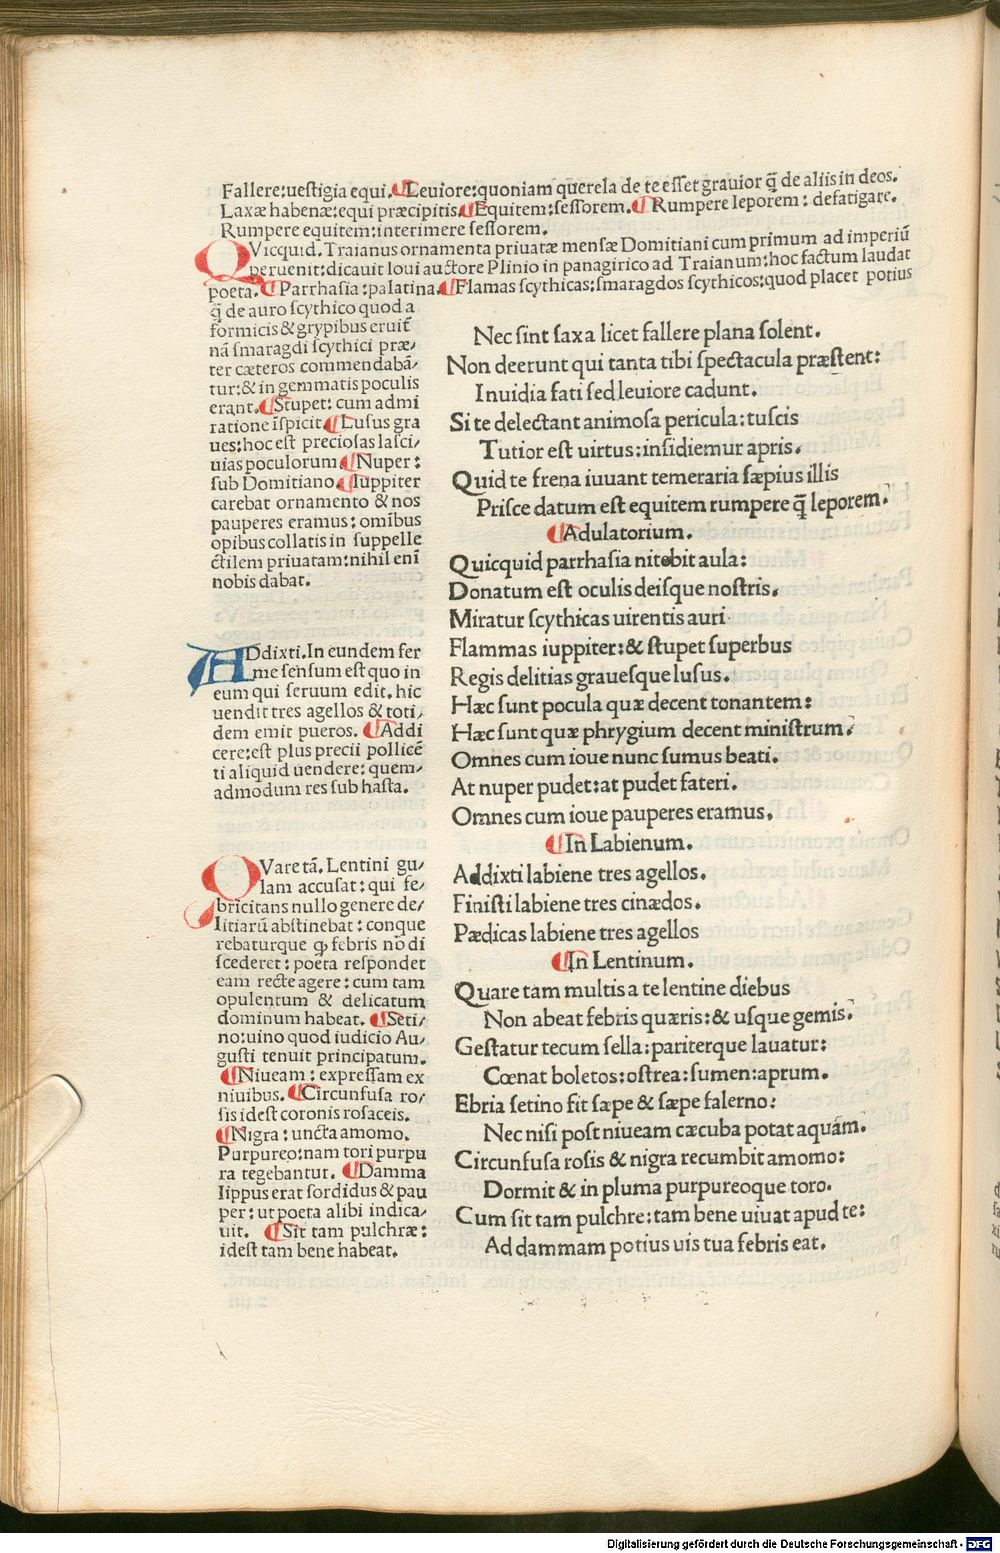 Fallere:ueſtigia equi.¶Leuiore:quoniam querela de te eſſet grauior q̃ de aliis in deos.
Laxæ habenæ:equi præcipitis.¶Equitem:ſeſſorem.¶Rumpere leporem: defatigare.
Rumpere equitem:interimere ſeſſorem.
QVicquid. Traianus ornamenta priuatæ menſæ Domitiani cum primum ad imperiũ
peruenit:dicauit Ioui auctore Plinio in panagirico ad Traianum:hoc factum laudat
poeta.¶Parrhaſia:palatina.¶Flamas ſcythicas:ſmaragdos ſcythicos:quod placet potius
q̃ de auro ſcythico quod a
formicis & grypibus eruit̃
nã ſmaragdi ſcythici præ/
ter cæteros commendabã/
tur:& in gemmatis poculis
erant.¶Stupet: cum admi
ratione iſpicit ¶Luſus gra
ues:hoc eſt precioſas laſci/
uias poculorum ¶Nuper:
ſub Domitiano.¶Iuppiter
carebat ornamento & nos
pauperes eramus: omibus
opibus collatis in ſuppelle
ctilem priuatam:nihil enĩ
nobis dabat.
ADdixti.In eundem fer
me ſenſum eſt quo in
eum qui ſeruum edit. hic
uendit tres agellos & toti/
dem emit pueros. ¶Addi
cere:eſt plus precii pollicẽ
ti aliquid uendere: quem/
admodum res ſub haſta.
QVare tã. Lentini gu/
lam accuſat: qui fe/
bricitans nullo genere de/
litiarũ abſtinebat: conque
rebaturque ꝙ febris nõ di
ſcederet: poeta reſpondet
eam recte agere: cum tam
opulentum & delicatum
dominum habeat. ¶Seti/
no:uino quod iudicio Au/
guſti tenuit principatum.
¶Niueam: expreſſam ex
niuibus. ¶Circunfuſa ro/
ſis ideſt coronis roſaceis.
¶Nigra: uncta amomo.
Purpureo:nam tori purpu
ra tegebantur. ¶Damma
lippus erat ſordidus & pau
per: ut poeta alibi indica/
uit. ¶Sit tam pulchræ:
ideſt tam bene habeat.
Nec ſint ſaxa licet fallere plana ſolent.
Non deerunt qui tanta tibi ſpectacula præſtent:
Inuidia fati ſed leuiore cadunt.
Si te delectant animoſa pericula:tuſcis
Tutior eſt uirtus:inſidiemur apris.
Quid te frena iuuant temeraria ſæpius illis
Priſce datum eſt equitem rumpere q̃ leporem.
¶Adulatorium.
Quicquid parrhaſia nitebit aula:
Donatum eſt oculis deiſque noſtris.
Miratur ſcythicas uirentis auri
Flammas iuppiter:& ſtupet ſuperbus
Regis delitias graueſque luſus.
Hæc ſunt pocula quæ decent tonantem:
Hæc ſunt quæ phrygium decent miniſtrum.
Omnes cum ioue nunc ſumus beati.
At nuper pudet:at pudet fateri.
Omnes cum ioue pauperes eramus.
¶In Labienum.
Addixti labiene tres agellos.
Finiſti labiene tres cinædos.
Pædicas labiene tres agellos
¶In Lentinum.
Quare tam multis a te lentine diebus
Non abeat febris quæris:& uſque gemis.
Geſtatur tecum ſella:pariterque lauatur:
Cœnat boletos:oſtrea:ſumen:aprum.
Ebria ſetino fit ſæpe & ſæpe falerno:
Nec niſi poſt niueam cæcuba potat aquam.
Circunfuſa roſis & nigra recumbit amomo:
Dormit & in pluma purpureoque toro.
Cum ſit tam pulchre:tam bene uiuat apud te:
Ad dammam potius uis tua febris eat.
Digitalisierung gefördert durch die Deutsche Forschungsgemeinschaft - DFG